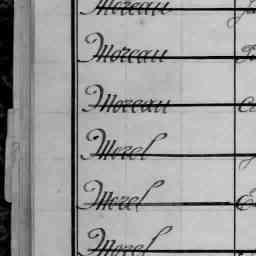 Moreau
Moreau
Moreau
Morel
Morel
Morel